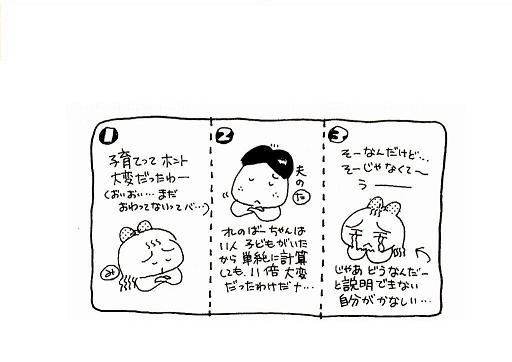 1
子育てって ホント
大変だったわー
(おいおい… まだ
おわってないってバ…)
み
2
夫の
た
オレのばーちゃんは
11人 子どもがいた
から 単純に計算
しても、11倍 大変
だったわけだナ…
3
そーなんだけど…
そーじゃなくて〜
う———
じゃあ どうなんだー
と説明できない
自分が かなしい…